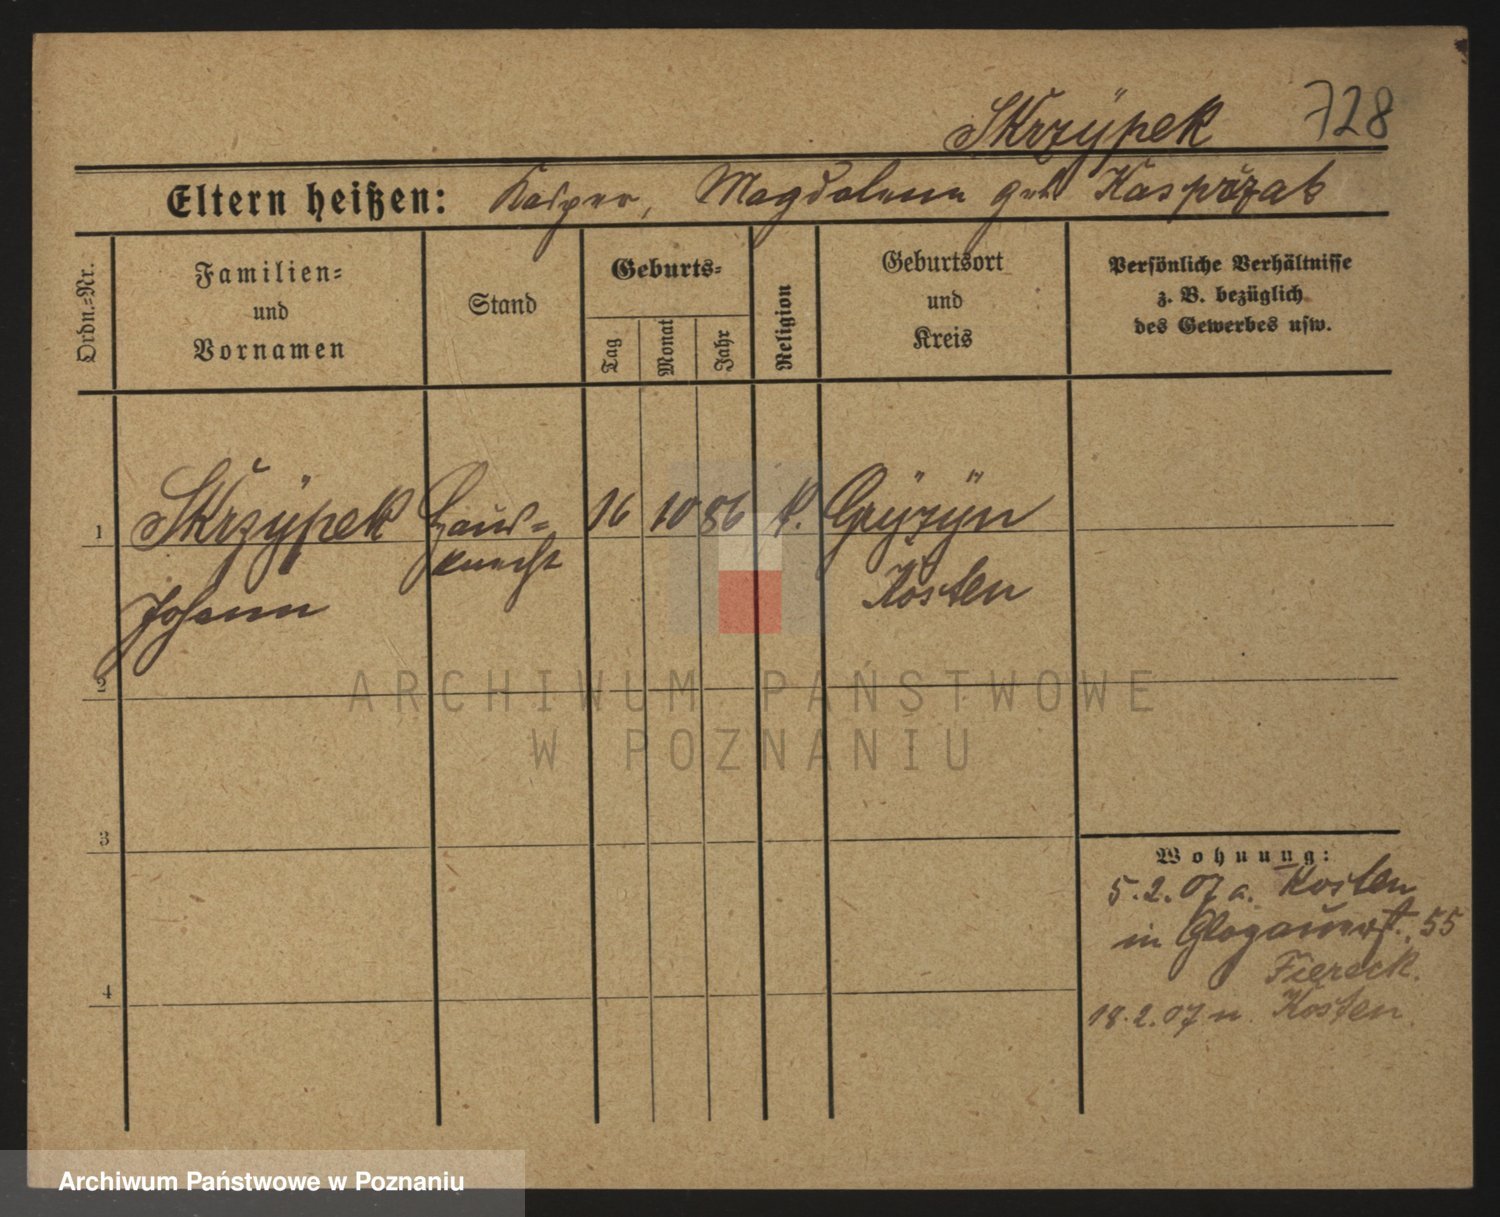 Skrzÿpek 728
Eltern heißen: Kasper, Magdalena geb Kasprzak
Ordn.=Nr.
Familien=
und
Vornamen
Stand
Geburts=
Tag
Monat
Jahr
Religion
Geburtsort
und
Kreis
Persönliche Verhältnisse
z. B. bezüglich
des Gewerbes usw.
1 Skrzÿpek Haus= 16 10 86 k. Grÿzÿn
knecht Kosten
Johann
2
3
4
Wohnung:
5.2.07 a. Kosten
in Glogauerst. 55
18.2.07 n. Kosten
ARCHIWUM PAŃSTWOWE
W POZNANIU
Archiwum Państwowe w Poznaniu